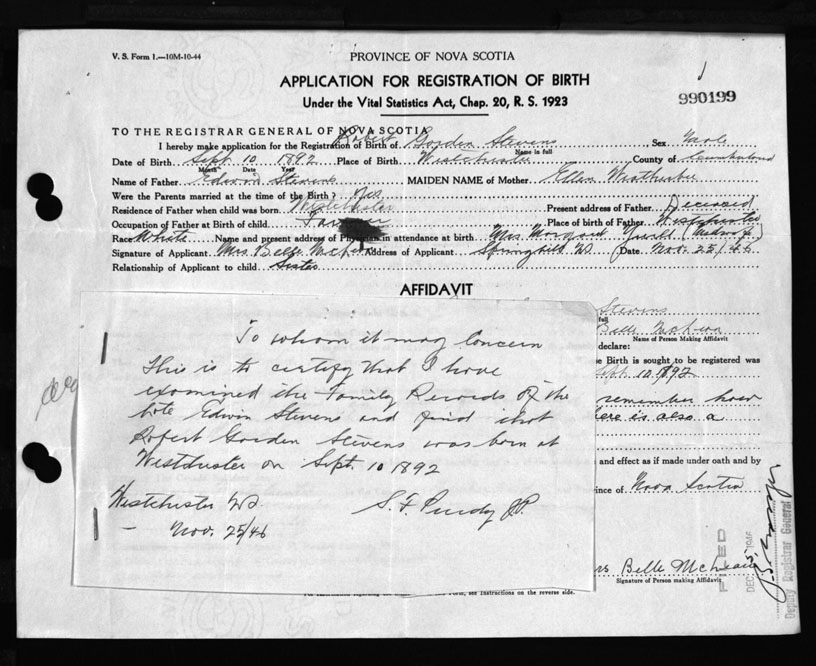 V. S. Form 1.—10M-10-44
PROVINCE OF NOVA SCOTIA
APPLICATION FOR REGISTRATION OF BIRTH
990199
Under the Vital Statistics Act, Chap. 20, R. S. 1923
TO THE REGISTRAR GENERAL OF NOVA SCOTIA
I hereby make application for the Registration of Birth of Robert Gorden Stevens Sex Male
Name in full
Date of Birth Sept 10 1892 Place of Birth Westchester County of Cumberland
Month Date Year
Name of Father Edwin Stevens MAIDEN NAME of Mother Ellen Weatherbee
Were the Parents married at the time of the Birth? Yes
Residence of Father when child was born Westchester Present address of Father Deceased
Occupation of Father at Birth of child Farmer Place of birth of Father Westchester
Race White Name and present address of Physician in attendance at birth Mrs
Signature of Applicant Mrs Belle Address of Applicant Springhill NS Date Nov. 22/46
Relationship of Applicant to child Sister
AFFIDAVIT
Stevens
full
Belle McLean
Name of Person Making Affidavit
declare:
Birth is sought to be registered was
Sept. 10, 1892
remember how
here is also a
and effect as if made under oath and by
ince of Nova Scotia
rs Belle McLean
Signature of Person making Affidavit
see Instructions on the reverse side.
To whom it may Concern
This is to certify that I have
examined the Family Records of the
late Edwin Stevens and find that
Robert Gorden Stevens was born at
Westchester on Sept. 10 1892
Westchester NS S. F. Purdy J.P.
Nov. 25/46
FILED
DEC 5 1946
Deputy Registrar General